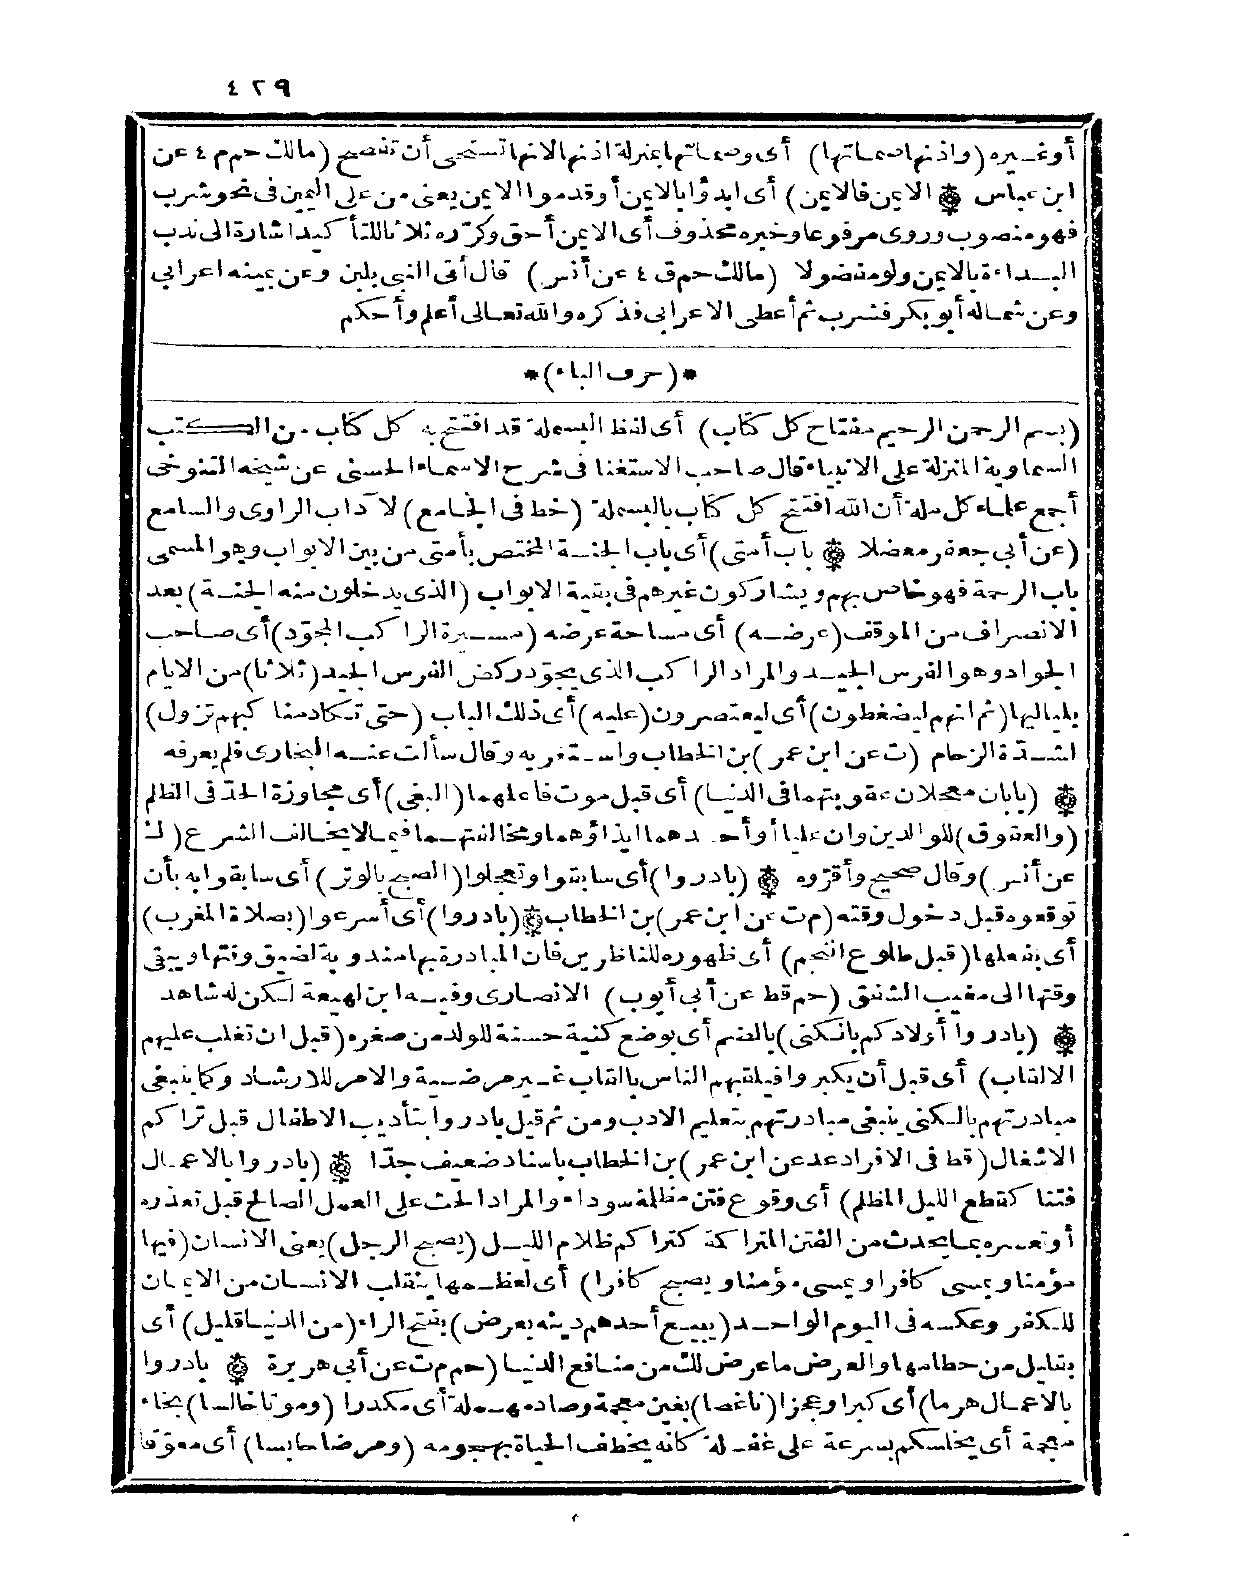 ٤٢٩
أو غيره (واذنها صماتها) أى وصماتها بمنزلة اذنها لانها تستحى أن تفصح (مالك حم م ٤ عن
ابن عباس ۞ الايمن فالايمن) أى ابدؤا بالايمن أو قدموا الايمن يعنى من على اليمين فى نحو شرب
فهو منصوب وروى مرفوعا وخبره محذوف أى الايمن أحق وكرّره ثلاثا للتأكيد اشارة الى ندب
البداءة بالايمن ولو مفضولا (مالك حم ق ٤ عن أنس) قال أتى النبى بلبن وعن يمينه اعرابى
وعن شماله أبو بكر فشرب ثم أعطى الاعرابى فذكره والله تعالى أعلم وأحكم
*(حرف الباء)*
(بسم الرحمن الرحيم مفتاح كل كتاب) أى لفظ البسملة قد افتتح به كل كتاب من الكتب
السماوية المنزلة على الانبياء قال صاحب الاستغنا فى شرح الاسماء الحسنى عن شيخه التنوخى
أجمع علماء كل ملة أن الله افتتح كل كتاب بالبسملة (خط فى الجامع) لآداب الراوى والسامع
(عن أبى جعفر معضلا ۞ باب أمتى) أى باب الجنة المختص بأمتى من بين الابواب وهو المسمى
باب الرحمة فهو خاص بهم ويشاركون غيرهم فى بقية الابواب (الذى يدخلون منه الجنة) بعد
الانصراف من الموقف (عرضه) أى مساحة عرضه (مسيرة الراكب المجوّد) أى صاحب
الجواد وهو الفرس الجيد والمراد الراكب الذى يجوّد ركض الفرس الجيد (ثلاثا) من الايام
بلياليها (ثم انهم ليضغطون) أى ليعتصرون (عليه) أى ذلك الباب (حتى تكاد مناكبهم تزول)
لشدّة الزحام (ت عن ابن عمر) بن الخطاب واستغربه وقال سألت عنه البخارى فلم يعرفه
۞ (بابان معجلان عقوبتهما فى الدنيا) أى قبل موت فاعلهما (البغى) أى مجاوزة الحدّ فى الظلم
(والعقوق) للوالدين وان عليا أو أحدهما ايذاؤهما ومخالفتهما فيما لا يخالف الشرع (ك
عن أنس) وقال صحيح وأقرّوه ۞ (بادروا) أى سابقوا وتعجلوا (الصبح بالوتر) أى سابقوا به بأن
توقعوه قبل دخول وقته (م ت عن ابن عمر) بن الخطاب ۞ (بادروا) أى أسرعوا (بصلاة المغرب)
أى بفعلها (قبل طلوع النجم) أى ظهوره للناظرين فان المبادرة بها مندوبة لضيق وقتها ويبقى
وقتها الى مغيب الشفق (حم قط عن أبى أيوب) الانصارى وفيه ابن لهيعة لكن له شاهد
۞ (بادروا أولادكم بالكنى) بالضم أى بوضع كنية حسنة للولد من صغره (قبل ان تغلب عليهم
الالقاب) أى قبل أن يكبروا فيلقبهم الناس بالقاب غير مرضية والامر للارشاد وكما ينبغى
مبادرتهم بالكنى ينبغى مبادرتهم بتعليم الادب ومن ثم قيل بادروا بتأديب الاطفال قبل تراكم
الاشغال (قط فى الافراد عد عن ابن عمر) بن الخطاب باسناد ضعيف جدّا ۞ (بادروا بالاعمال
فتنا كقطع الليل المظلم) أى وقوع فتن مظلمة سوداء والمراد الحث على العمل الصالح قبل تعذره
أو تعسره بما يحدث من الفتن المتراكمة كتراكم ظلام الليل (يصبح الرجل) يعنى الانسان (فيها
مؤمنا ويمسى كافرا ويمسى مؤمنا ويصبح كافرا) أى لعظمها ينقلب الانسان من الايمان
للكفر وعكسه فى اليوم الواحد (يبيع أحدهم دينه بعرض) بفتح الراء (من الدنيا قليل) أى
بقليل من حطامها والعرض ما عرض لك من منافع الدنيا (حم م ت عن أبى هريرة ۞ بادروا
بالاعمال هرما) أى كبرا وعجزا (ناغصا) بغين معجمة وصاد مهملة أى مكدرا (وموتا خالسا) بخاء
معجمة أى يخلسكم بسرعة على غفلة كأنه يخطف الحياة بهجومه (ومرضا حابسا) أى معوّقا